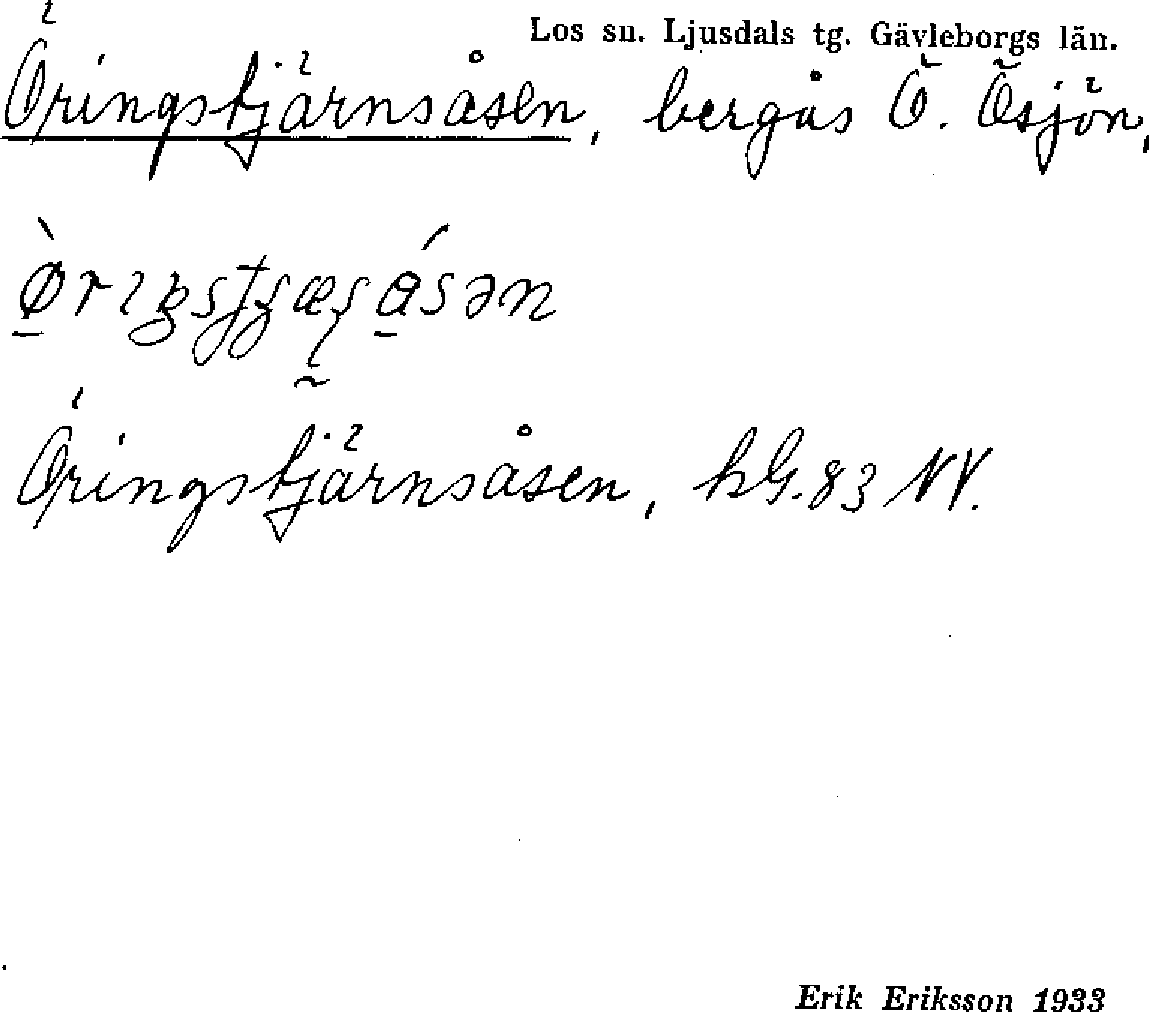 Los sn. Ljusdals tg. Gävleborgs län.
Öringstjärnsåsen, bergås Ö. Ösjön,
Öringstjärnsåsen, hG. 83 NV.
Erik Eriksson 1933